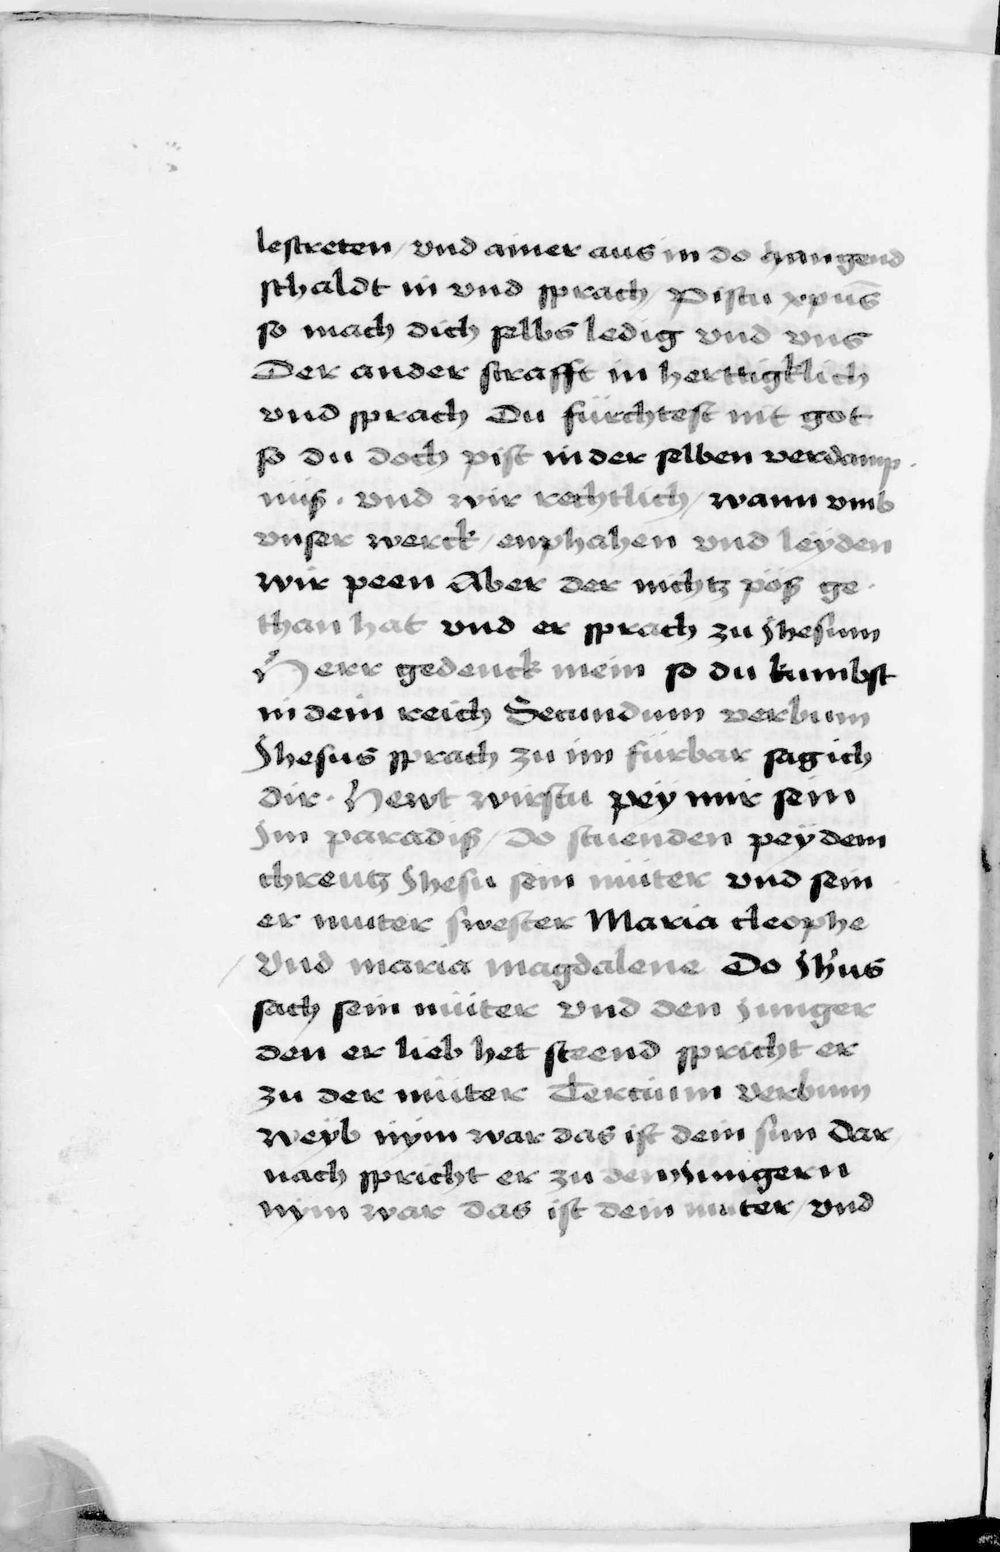 lestreten / vnd ainer aus in do hangend
schaldt in vnd sprach / Pistu xpūs
so mach dich selbs ledig vnd vns
Der ander strafft in herttigklich
vnd sprach Du fürchtest nit got
so du doch pist in der selben verdamp-
nüß · vnd wir rechtlich / wann vmb
vnser werck / enphahen vnd leÿden
wir peen Aber der nichtz pöß ge-
than hat vnd er sprach zu Jhesum
Herr gedenck mein so du kumbst
in dein reich Secundum verbum
Jhesus sprach zu im fürbar sag ich
dir · Hewt wirstu peÿ mir sein
Im paradiß / Do stuenden peÿ dem
chreutz Jhesu sein müter vnd sein
er muter swester Maria cleophe
Vnd maria magdalene Do Jhūs
sach sein müter vnd den Junger
den er lieb het steend spricht er
zu der müter Tercium Verbum
Weÿb nÿm war das ist dein sun Dar
nach spricht er zu dem Jungern
nÿm war das ist dein muter / vnd